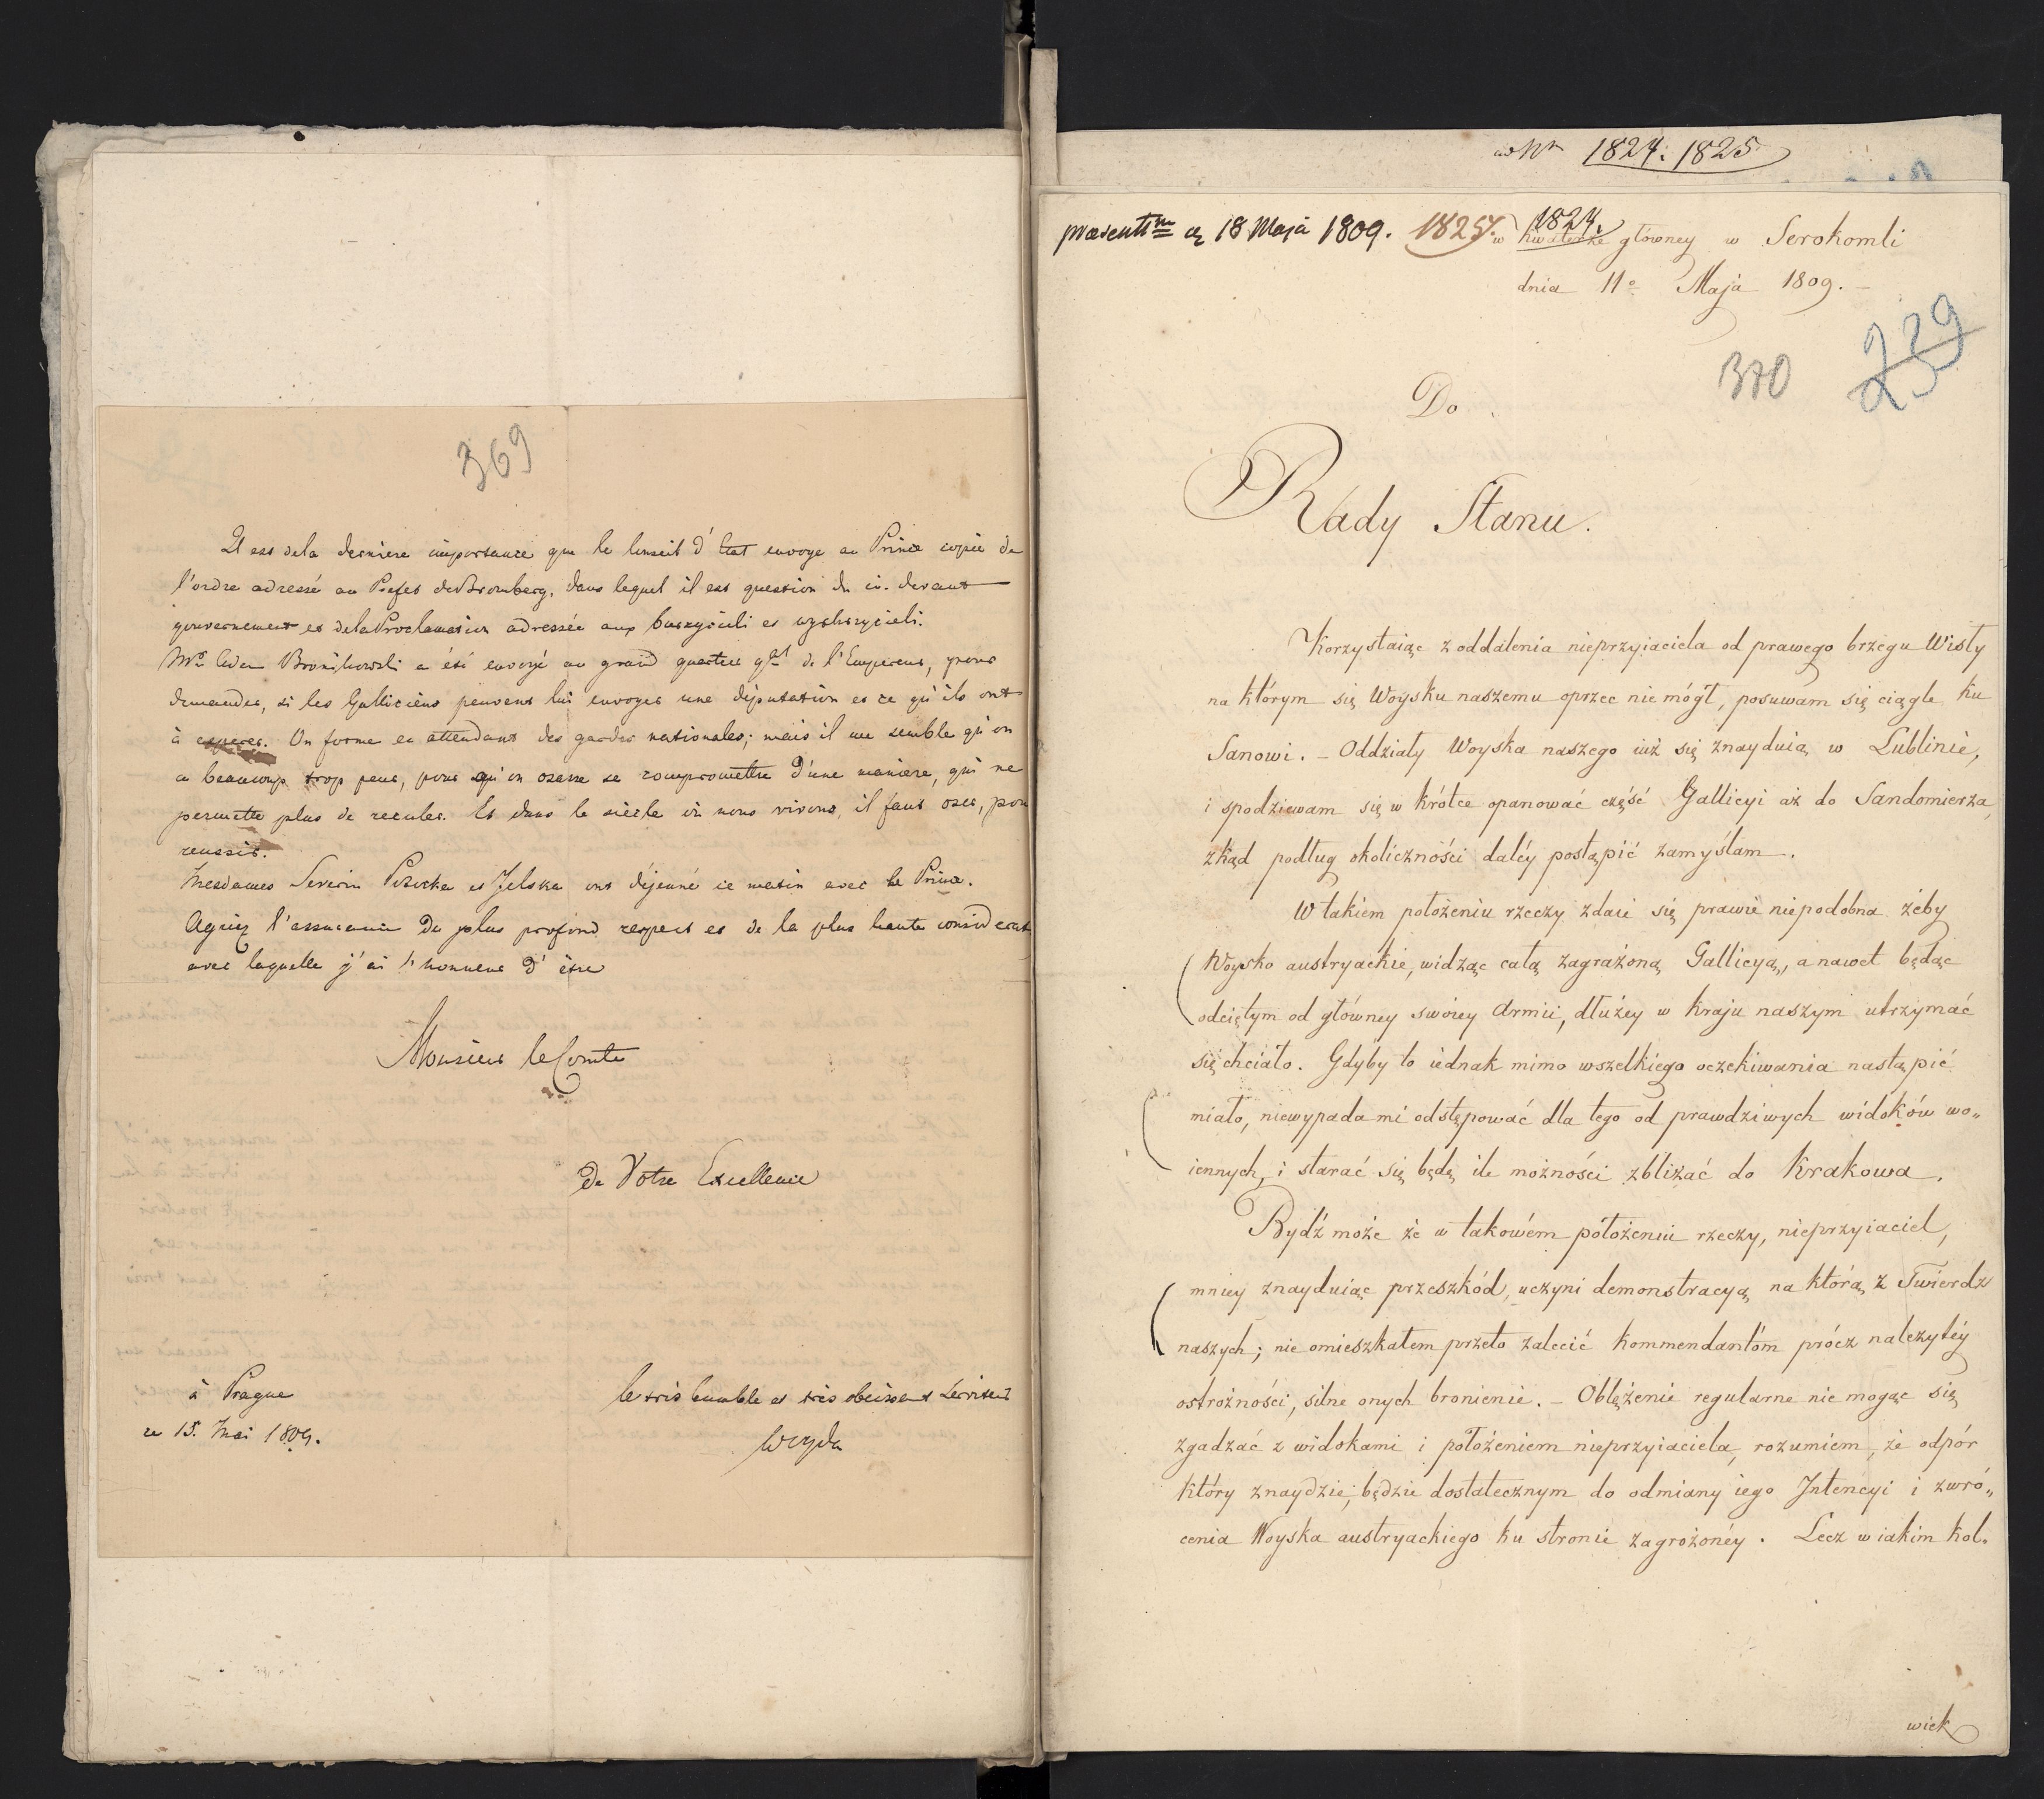 369
Il est de la derniere importance que le Conseil d'Etat envoye au Prince copie de
l'ordre adressé au Prefet de Bromberg, dans lequel il est question du ci-devant
gouvernement et de la Proclamation adressée aux
Mr. Bronikowski a été envoyé au grand quartier gal de l'Empereur, pour
demander, si les Galliciens peuvent lui envoyer une députation et ce qu'ils ont
à esperer. On forme en attendant des gardes nationales; mais il me semble qu'on
a beaucoup trop peur, pour qu'on osasse se compromettre d'une maniere, qui ne
permette plus de reculer. Et dans le siècle où nous vivons, il faut oser, pour
reussir.
Mesdames Severin Potocka et Jelska ont déjeuné ce matin avec le Prince.
Agréez l'assurance du plus profond respect et de la plus haute considerat
avec laquelle j'ai l'honneur d'être
Monsieur le Comte
de Votre Excellence
à Prague
ce 15. Mai 1809.
le très humble et très obeissant Serviteur
ad Nr 1824. 1825
praesentm d. 18 Maja 1809. 1825. 1824.
w Kwaterze główney w Serokomli
dnia 11o Maja 1809.
370 239
Do
Rady Stanu.
Korzystaiąc z oddalenia nieprzyiaciela od prawego brzegu Wisły
na którym się Woysku naszemu oprzec nie mógł, posuwam się ciągle ku
Sanowi. - Oddziały Woyska naszego iuż się znayduią w Lublinie,
i spodziewam się w krótce opanować część Gallicyi aż do Sandomierza,
zkąd podług okoliczności daléy postąpić zamyślam.
W takiem położeniu rzeczy zdaie się prawie niepodobna żeby
Woysko austryackie, widząc całą zagrażoną Gallicyą, a nawet będąc
odciętym od główney swoiey Armii, dłużey w kraju naszym utrzymać
się chciało. Gdyby to iednak mimo wszelkiego oczekiwania nastąpić
miało, niewypada mi odstępować dla tego od prawdziwych widoków wo„
iennych, i starać się będę ile możności zbliżać do Krakowa.
Bydź może że w takowém położeniu rzeczy, nieprzyiaciel,
mniey znayduiąc przeszkód, uczyni demonstracyą na którą z Twierdz
naszych; nie omieszkałem przeto zalecić Kommendantóm prócz należytéy
ostrożności, silne onych bronienie. - Oblężenie regularne nie mogąc się
zgadzać z widokami i położeniem nieprzyiaciela, rozumiem, że odpór
który znaydzie, będzie dostatecznym do odmiany iego Intencyi i zwró„
cenia Woyska austryackiego ku stronie zagrożonéy. Lecz w iakim kol.
wiek